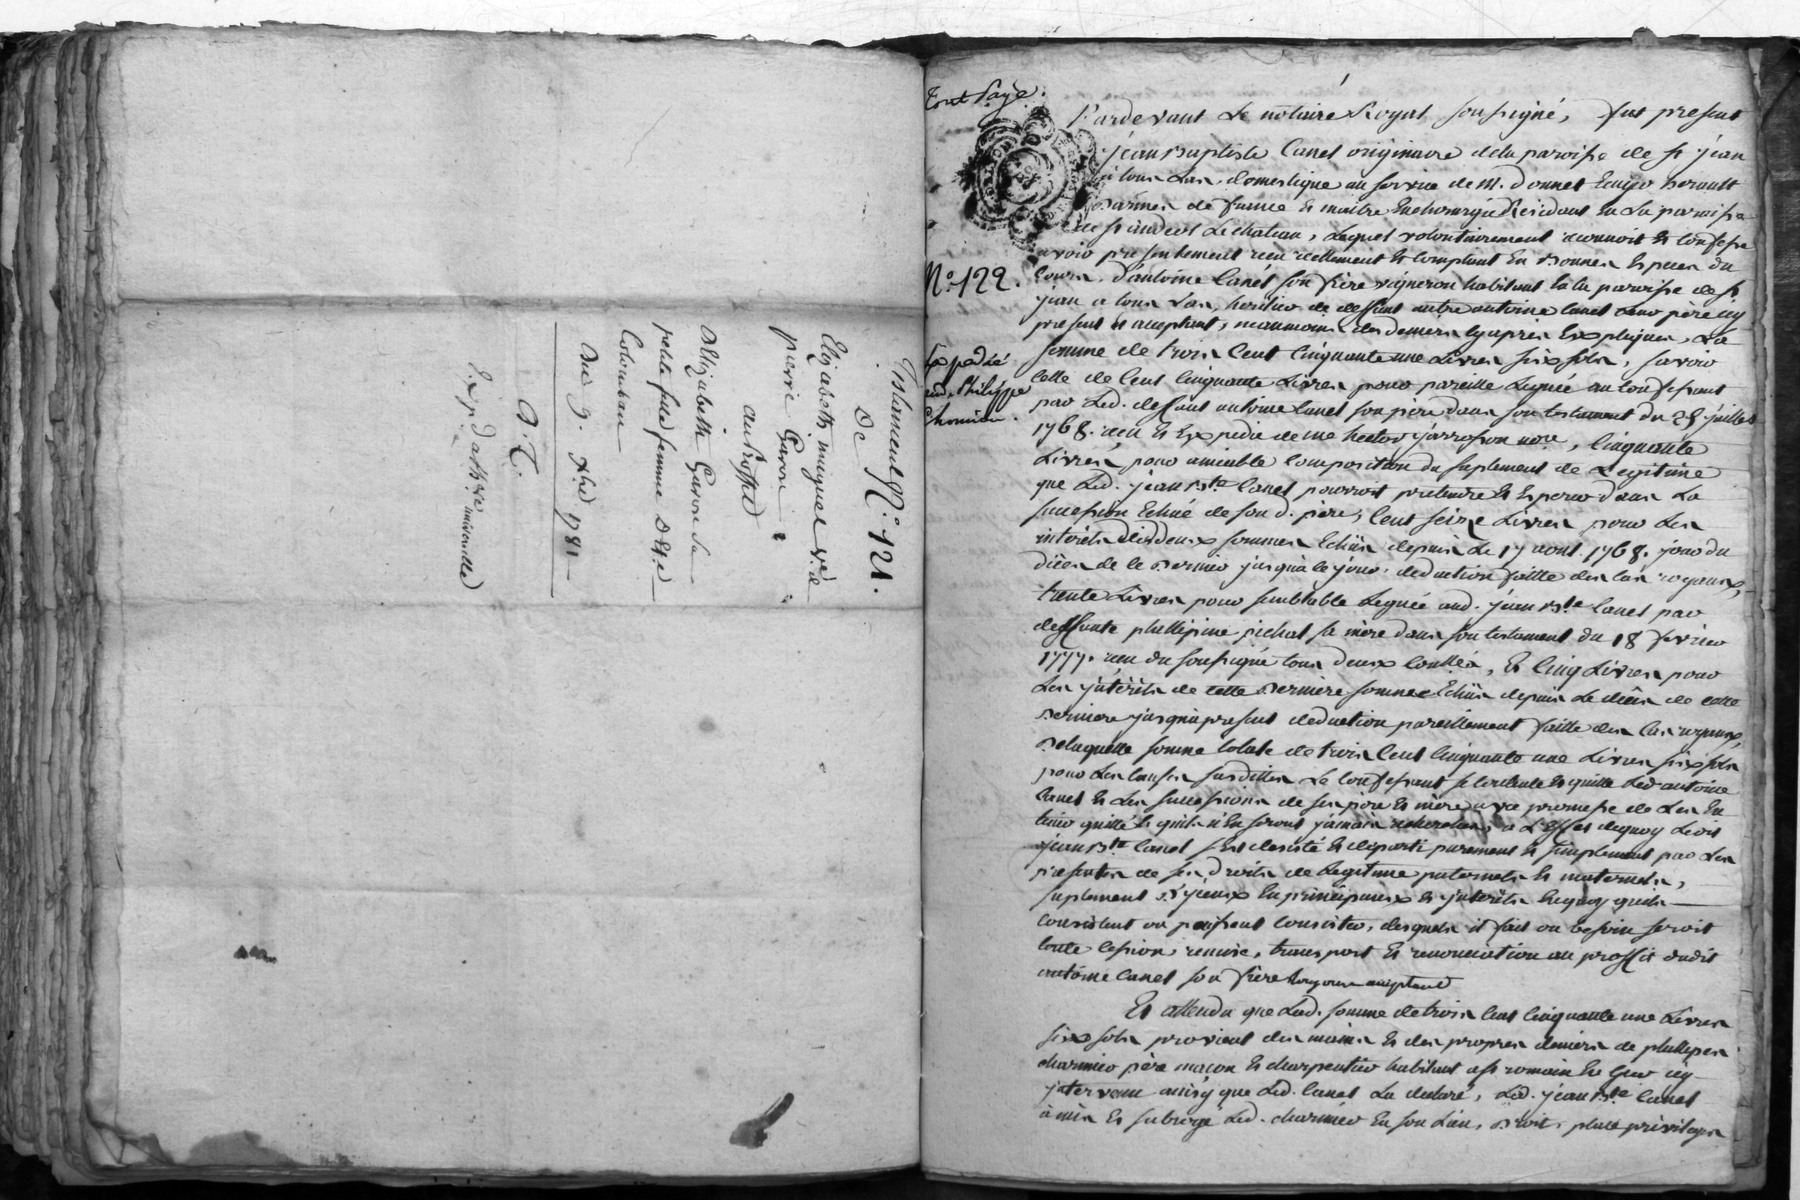 Testament N.° 121.
De
Elizabeth miquel v.ve de
pierre Garon
au Proffit
D'Elizabeth Garon sa
petite fille femme D'And.
Colomban
Du 9. x.bre 1781
D. T.
Exp.
universelle
tout Payé.
N.° 122.
Expedié
aud. Philippe
Charmier.
Pardevant le nôtaire Royal soussigné, fut present
jean Baptiste Canet originaire de la paroisse de st jean
à tous Las, domestique au service de M. Donnet Ecuyer herault
D'armes de france et maître En chirurgie Residant En La paroisse
de st andeol Le chateau, Lequel volontairement reconnoit et Confesse
avoir presentement reçu réellement et comptant En Bonnes Especes du
Cours, d'antoine Canet son frère vigneron habitant En la paroisse de st
jean a tous Las, heritier de deffunt autre antoine Canet leur père icy
present et acceptant, neanmoins des deniers cyapres Expliqués, La
somme de trois Cent Cinquante une Livres six sols, savoir
Celle de Cent Cinquante Livres pour pareille Leguée au Confessant
par Led. deffunt antoine Canet son père dans son testament du 28 juillet
1768. reçu et Expedié de me hector jarrosson no.re, Cinquante
Livres pour amiable Composition du suplement de Legitime
que Led. jean B.te Canet pourroit pretendre et Esperer dans La
succession Echue de son d. père, Cent seize Livres pour Les
intérêts desd. deux sommes Echus depuis Le 17 aout 1768. jour du
décès de ce Dernier jusqu'à ce jour, deduction faitte des Cas royaux,
trente Livres pour semblable Leguée aud. jean B.te Canet par
deffunte phillipine pichat sa mère dans son testament du 18 fevrier
1777. reçu du soussigné tous deux Contrôlés, et Cinq Livres pour
Les intérêts de cette Derniere somme Echus depuis Le décès de cette
Derniere jusqu'a present deduction pareillement faitte des Cas royaux,
De laquelle somme totale de trois Cent Cinquante une Livres six sols
pour Les Causes susdittes Le Confessant se Contente et quitte Led. antoine
Canet et Les successions de ses père et mère avec promesse de Les En
tenir quitte et qu'ils n'En seront jamais recherchés, a L'Effet dequoy Ledit
jean B.te Canet s'Est desisté et départi purement et simplement par Les
presentes de ses Droits de Legitime paternels et maternels,
suplement D'iceux En principaux et intérêts En quoy qu'ils
Consistent ou puissent Consister, desquels il fait ou besoin seroit
toute Cession, remise, transport et renonciation au proffit dudit
antoine Canet son frère toujours acceptant
Et attendu que Lad. somme de trois Cent Cinquante une Livres
six sols provient des mains et des propres deniers de phillipes
charmier père maçon et charpentier habitant a st romain En Gier icy
intervenu ainsy que Led. Canet L'a declaré, Led. jean B.te Canet
a mis et subrogé Led. charmier En son Lieu, Droit, place privilege